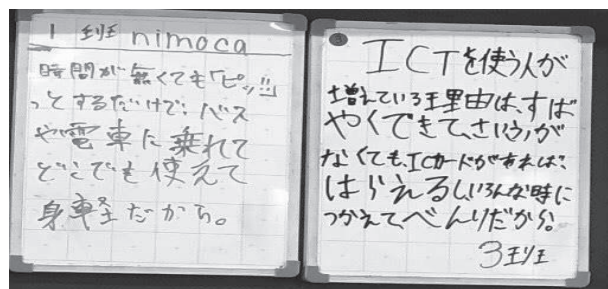 1班 nimoca
時間が無くても「ピッ!!」
っとするだけで、バス
や電車に乗れて
どこでも使えて
身軽だから。
ICTを使う人が
増えている理由は、すば
やくできて、さいふが
なくても、ICカードがあれば、
はらえるし、いろんな時に
つかえて、べんりだから。
3班